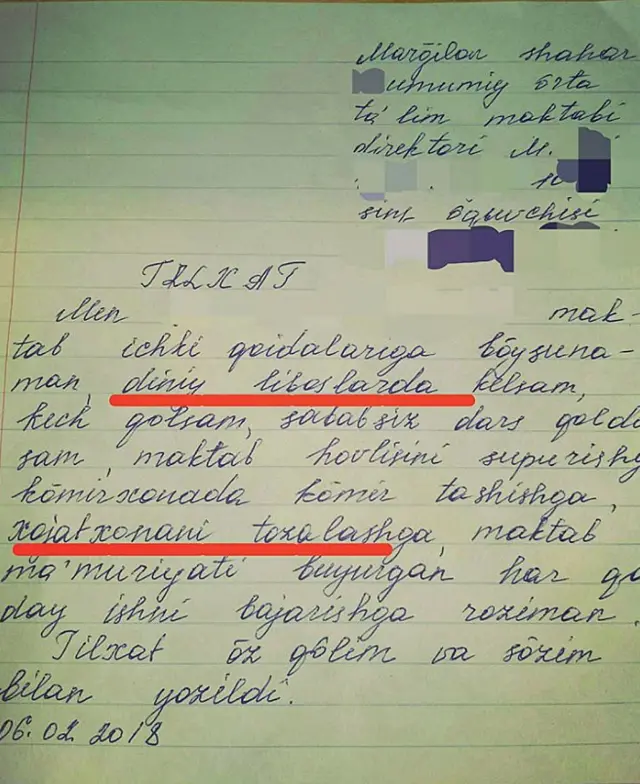 Marğilon shahar
umumiy ōrta
ta'lim maktabi
direktori M.
10
sinf ōquvchisi
TILXAT
Men mak-
tab ichki qoidalariga bōysuna-
man, diniy liboslarda kelsam,
kech qolsam, sababsiz dars qoldi
sam, maktab hovlisini supurishg
kōmirxonada kōmir tashishga,
xojatxonani tozalashga, maktab
ma'muriyati buyurgan har qa
day ishni bajarishga roziman.
Tilxat ōz qōlim va sōzim
bilan yozildi.
06.02.2018